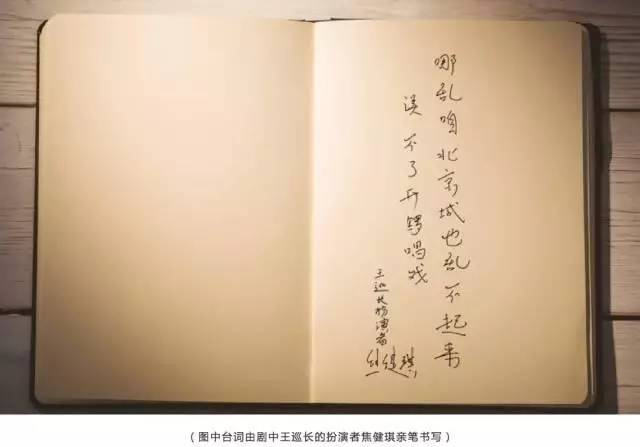 哪乱咱北京城也乱不起来
误不了开锣唱戏
王巡长扮演者
焦健琪
（图中台词由剧中王巡长的扮演者焦健琪亲笔书写）